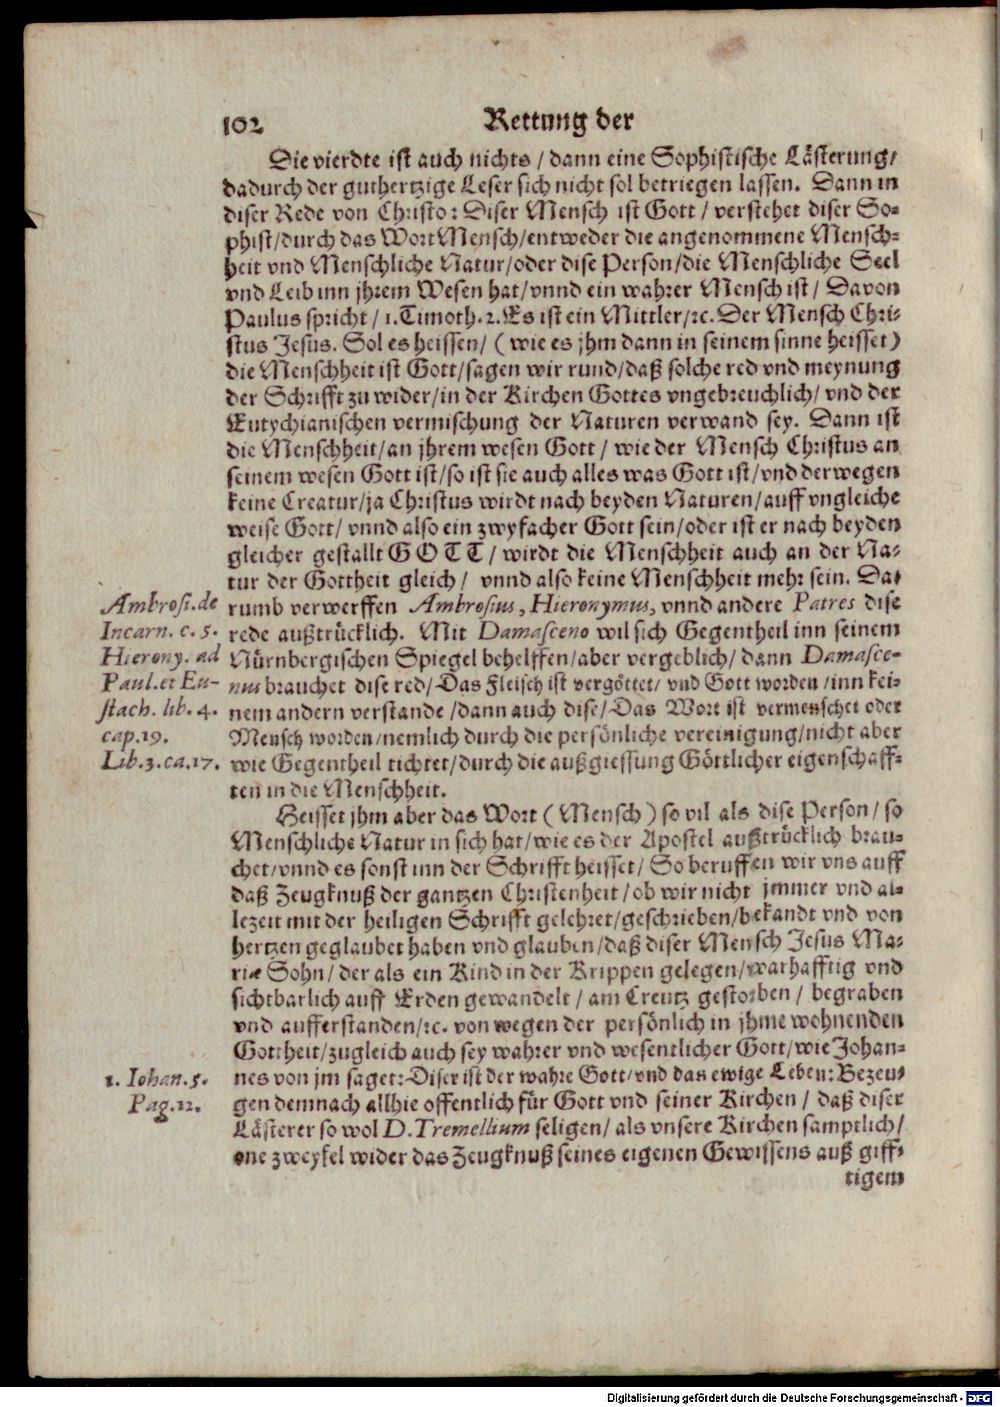 102 Rettung der
Die vierdte ist auch nichts / dann eine Sophistische Lästerung/
dadurch der guthertzige Leser sich nicht sol betriegen lassen. Dann in
diser Rede von Christo: Diser Mensch ist Gott / verstehet diser So-
phist/durch das Wort Mensch/entweder die angenommene Mensch-
heit vnd Menschliche Natur/oder dise Person/die Menschliche Seel
vnd Leib inn jhrem Wesen hat/vnnd ein wahrer Mensch ist / Davon
Paulus spricht / 1. Timoth. 2. Es ist ein Mittler/ꝛc. Der Mensch Chri-
stus Jesus. Sol es heissen/ (wie es jhm dann in seinem sinne heisset)
die Menschheit ist Gott/sagen wir rund/daß solche red vnd meynung
der Schrifft zu wider/in der Kirchen Gottes vngebreuchlich/ vnd der
Eutychianischen vermischung der Naturen verwand sey. Dann ist
die Menschheit/an jhrem wesen Gott / wie der Mensch Christus an
seinem wesen Gott ist/so ist sie auch alles was Gott ist/vnd derwegen
keine Creatur/ja Christus wirdt nach beyden Naturen/auff vngleiche
weise Gott/ vnnd also ein zwyfacher Gott sein/oder ist er nach beyden
gleicher gestallt GOTT/ wirdt die Menschheit auch an der Na-
tur der Gottheit gleich / vnnd also keine Menschheit mehr sein. Da-
Ambrosi. de
Incarn. c. 5.
Hierony. ad
Paul. et Eu-
stach. lib. 4.
cap. 19.
Lib. 3. ca. 17.
rumb verwerffen Ambrosius, Hieronymus, vnnd andere Patres dise
rede außtrücklich. Mit Damasceno wil sich Gegentheil inn seinem
Nürnbergischen Spiegel behelffen/aber vergeblich/ dann Damasce-
nus brauchet dise red/Das Fleisch ist vergöttet/ vnd Gott worden /inn kei-
nem andern verstande /dann auch dise/Das Wort ist vermenschet oder
Mensch worden/nemlich durch die persönliche vereinigung/nicht aber
wie Gegentheil tichtet/durch die außgiessung Göttlicher eigenschaff-
ten in die Menschheit.
Heisset jhm aber das Wort (Mensch) so vil als dise Person / so
Menschliche Natur in sich hat/wie es der Apostel außtrücklich brau-
chet/vnnd es sonst inn der Schrifft heisset/ So beruffen wir vns auff
daß Zeugknuß der gantzen Christenheit /ob wir nicht jmmer vnd al-
lezeit mit der heiligen Schrifft gelehret/geschrieben/bekandt vnd von
hertzen geglaubet haben vnd glauben/daß diser Mensch Jesus Ma-
riæ Sohn / der als ein Kind in der Krippen gelegen/warhafftig vnd
sichtbarlich auff Erden gewandelt / am Creutz gestorben / begraben
vnd aufferstanden/ꝛc. von wegen der persönlich in jhme wohnenden
Gottheit/zugleich auch sey wahrer vnd wesentlicher Gott/wie Johan-
1. Iohan. 5.
Pag. 12.
nes von jm saget: Diser ist der wahre Gott/vnd das ewige Leben: Bezeu-
gen demnach allhie offentlich für Gott vnd seiner Kirchen / daß diser
Lästerer so wol D. Tremellium seligen/ als vnsere Kirchen samptlich/
one zweyfel wider das Zeugknuß seines eigenen Gewissens auß giff-
tigem
Digitalisierung gefördert durch die Deutsche Forschungsgemeinschaft - DFG